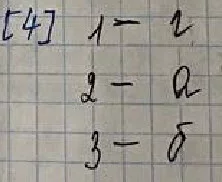 [4] 1 – г
2 – а
3 – б